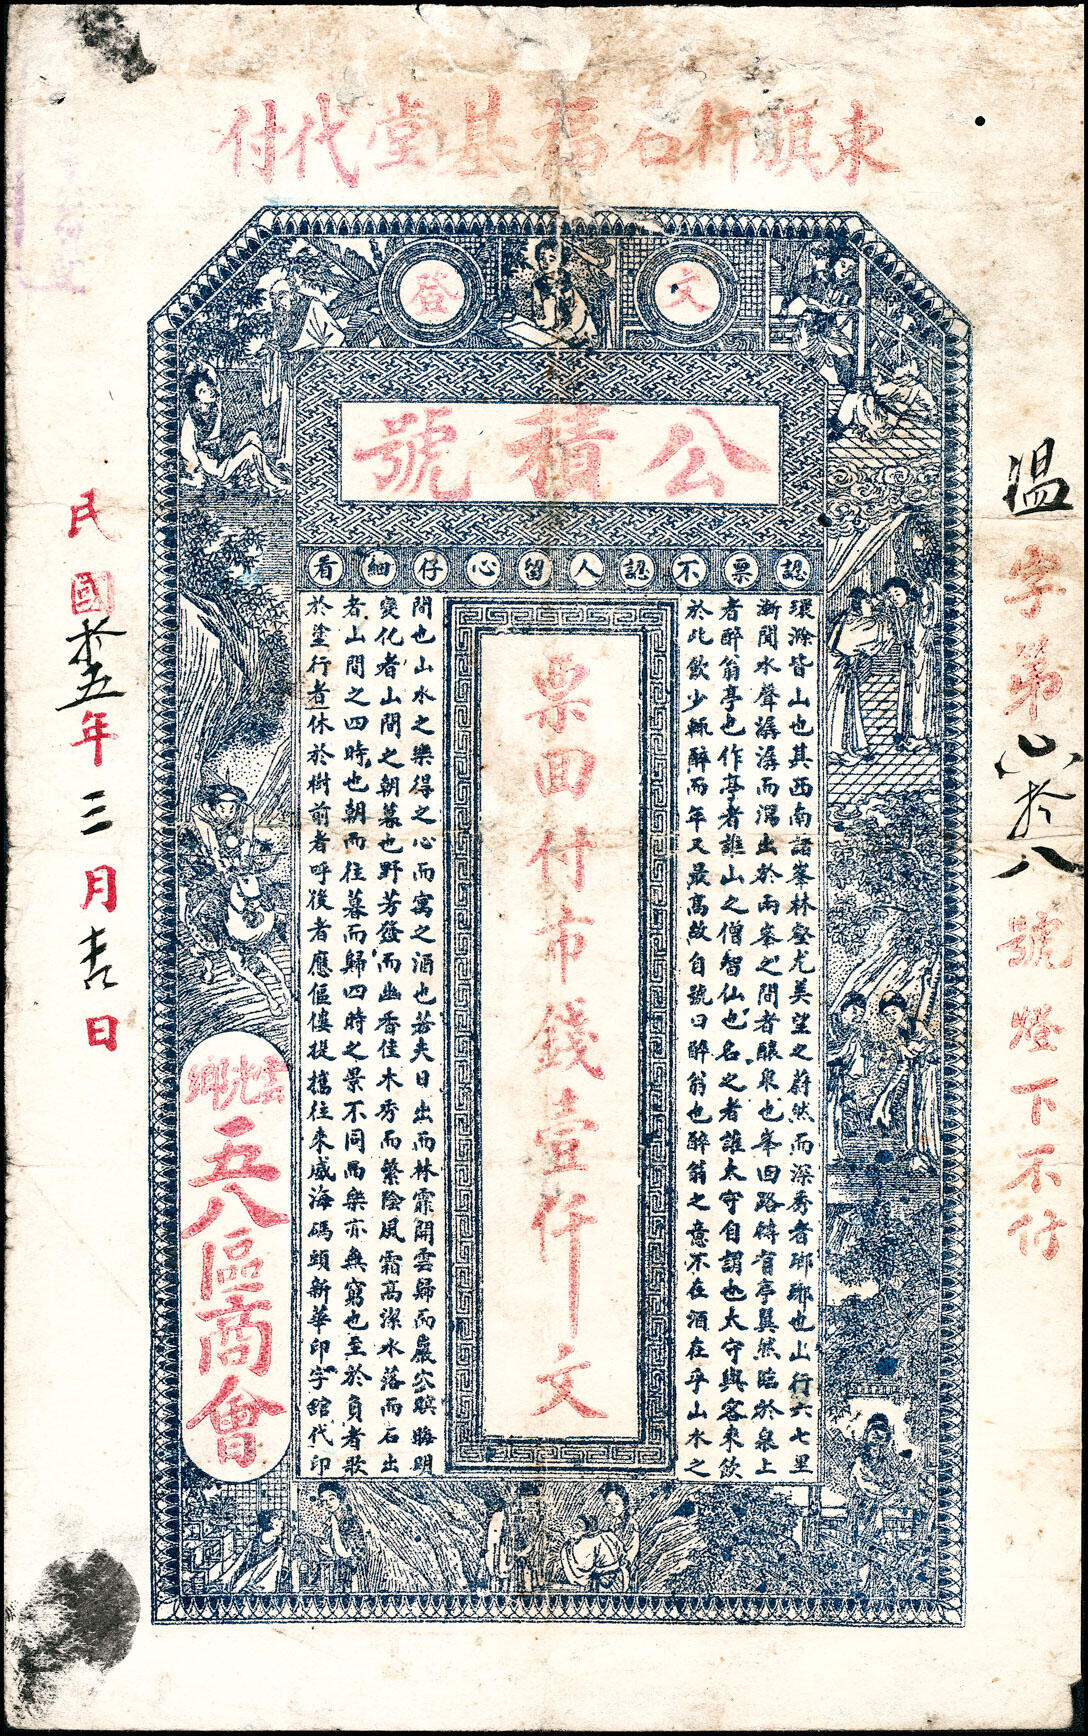 東旗杆石福基堂代付
文登
公積號
認票不認人留心仔細看
温字第六拾八號燈下不付
環滁皆山也其西南諸峯林壑尤美望之蔚然而深秀者瑯琊也山行六七里
漸聞水聲潺潺而瀉出於兩峯之間者釀泉也峯回路轉有亭翼然臨於泉上
者醉翁亭也作亭者誰山之僧智仙也名之者誰太守自謂也太守與客來飲
於此飲少輒醉而年又最高故自號曰醉翁也醉翁之意不在酒在乎山水之
票回付市錢壹仟文
間也山水之樂得之心而寓之酒也若夫日出而林霏開雲歸而巖穴暝晦明
變化者山間之朝暮也野芳發而幽香佳木秀而繁陰風霜高潔水落而石出
者山間之四時也朝而往暮而歸四時之景不同而樂亦無窮也至於負者歌
於塗行者休於樹前者呼後者應傴僂提攜往來威海碼頭新華印字館代印
五八區商會
民國拾五年三月吉日